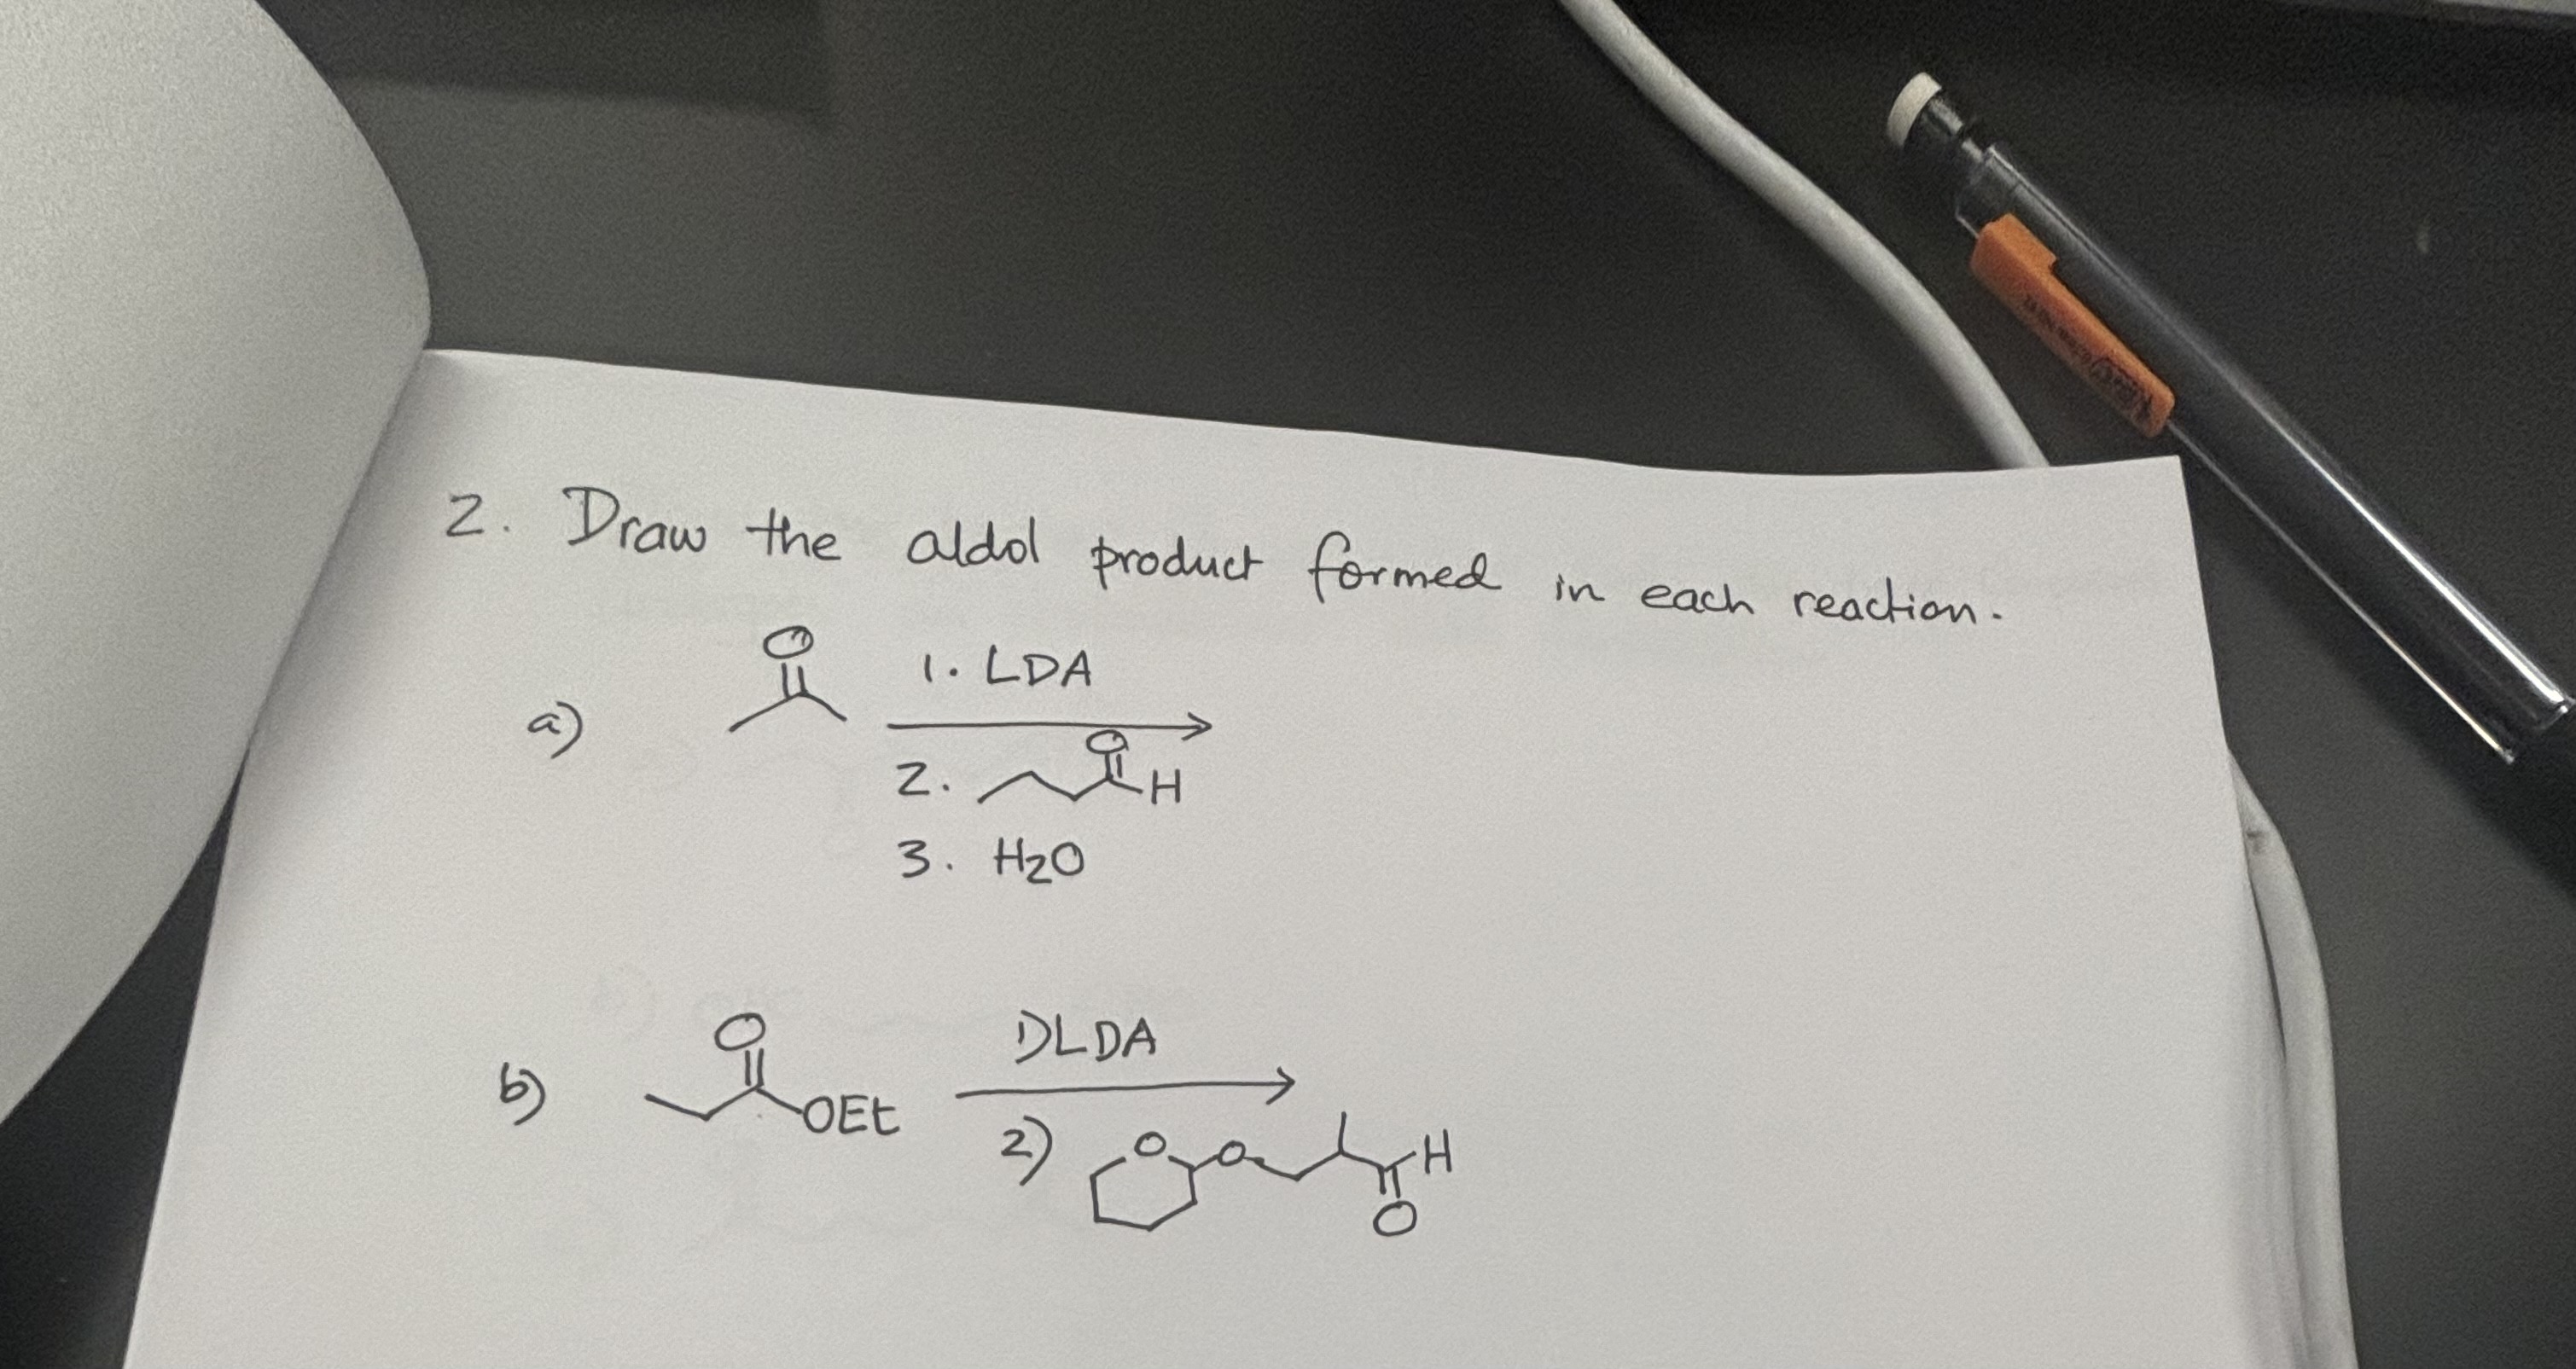 2. Draw the aldol product formed in each reaction.
a)
O
1. LDA
2.
O
H
3. H2O
b)
O
OEt
DLDA
2)
O
O
H
O